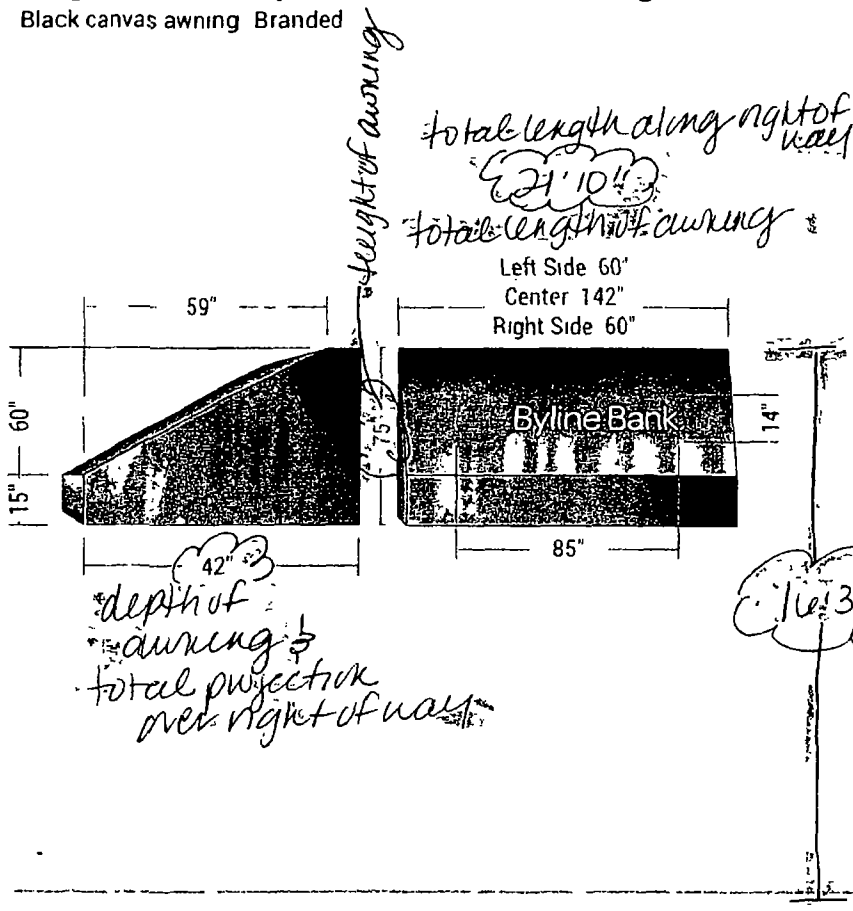 Black canvas awning Branded
height of awning
total length along right of way
21'10"
total length of awning
Left Side 60"
Center 142"
Right Side 60"
59"
60"
15"
75"
Byline Bank
14"
85"
42"
depth of
awning &
total projection
over right of way